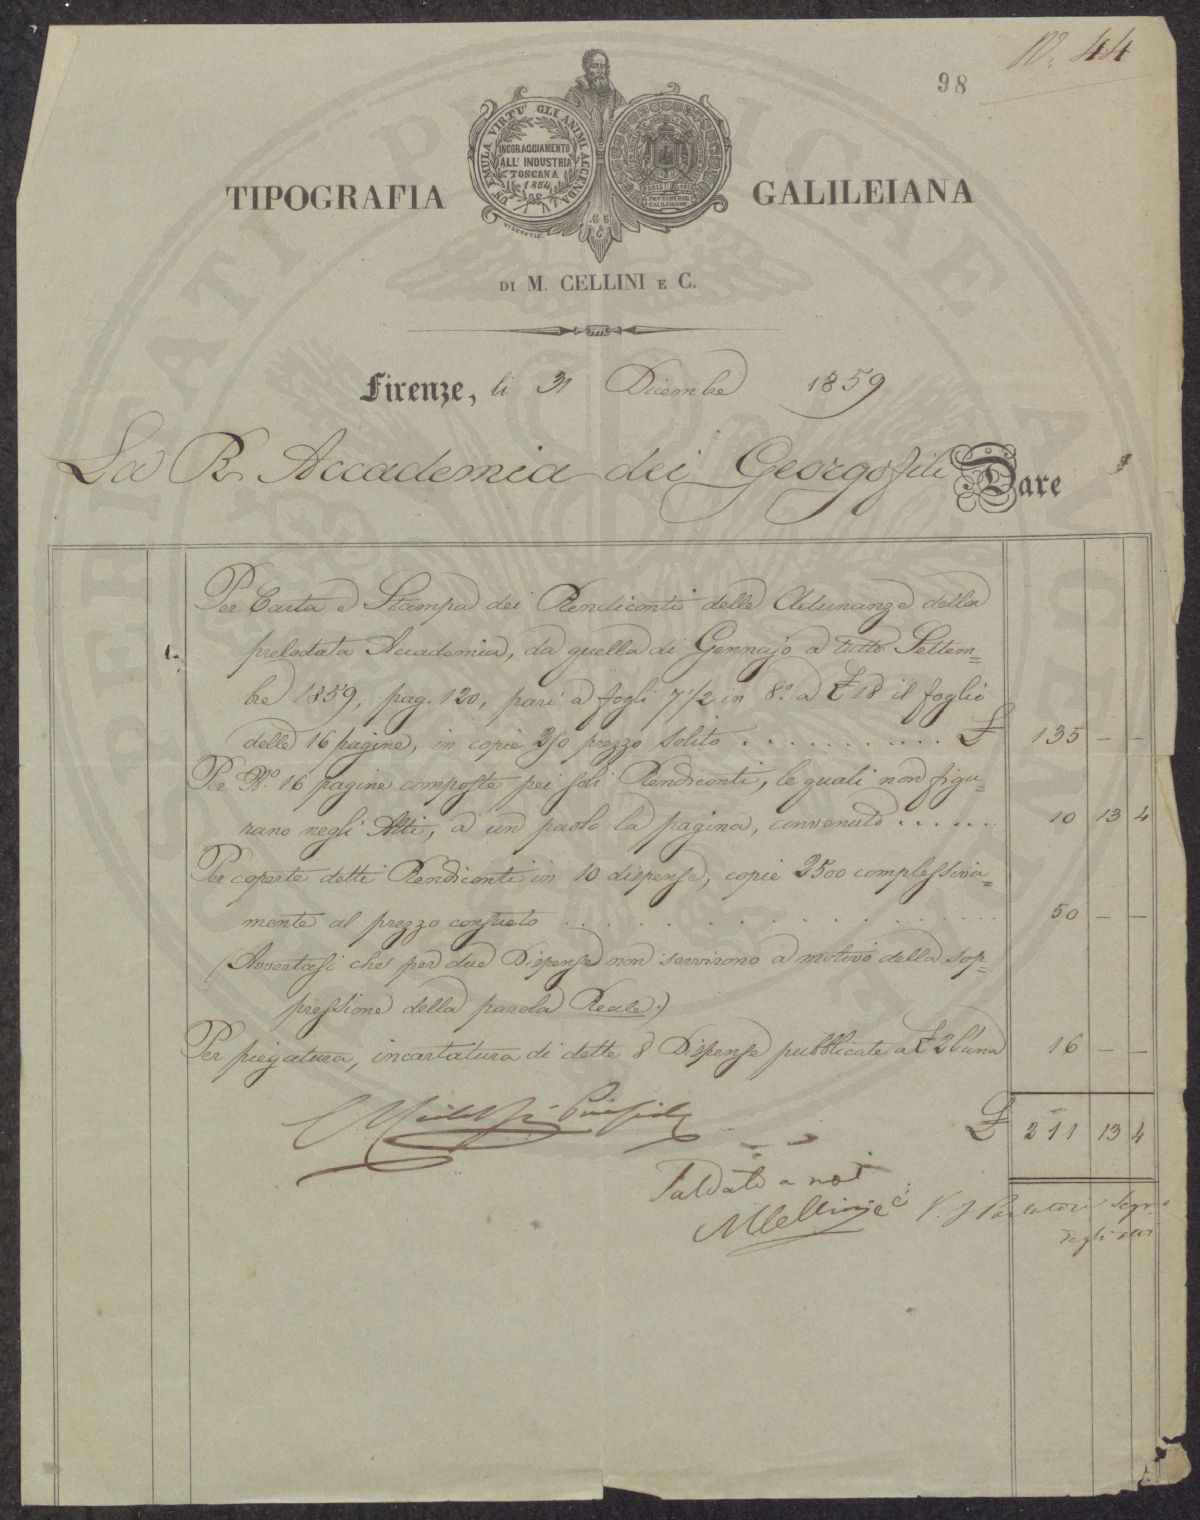 Nº. 44
98
UN'EMULA VIRTU' GLI ANIMI ACCENDA
INCORAGGIAMENTO
ALL' INDUSTRIA
TOSCANA
1854
IMPRIMERIE
GALILEIENNE
TIPOGRAFIA GALILEIANA
DI M. CELLINI E C.
Firenze, li 31 Dicembre 1859
La R. Accademia dei Georgofili Dare
Per Carta e Stampa dei Rendiconti delle Adunanze della
1. prelodata Accademia, da quella di Gennajo a tutto Settem=
bre 1859, pag. 120, pari a fogli 7 1/2 in 8.º a £ 18 il foglio
delle 16 pagine, in copie 250 prezzo solito . . . . . . . . . . £ 135 — —
Per Nº. 16 pagine composte pei soli Rendiconti, le quali non figu=
rano negli Atti, a un paolo la pagina, convenuto . . . . . . 10 13 4
Per coperte detti Rendiconti in 10 dispense, copie 2500 complessiva=
mente al prezzo consueto . . . . . . . . . . 50 — —
(Avvertasi che per due Dispense non servirono a motivo della sop=
pressione della parola Reale.)
Per piegatura, incartatura di dette 8 Dispense pubblicate a £ 2 l'una 16 — —
£ 211 13 4
Saldato a noi
MCellini e C.
V. Parlatore Segr.
degli Atti